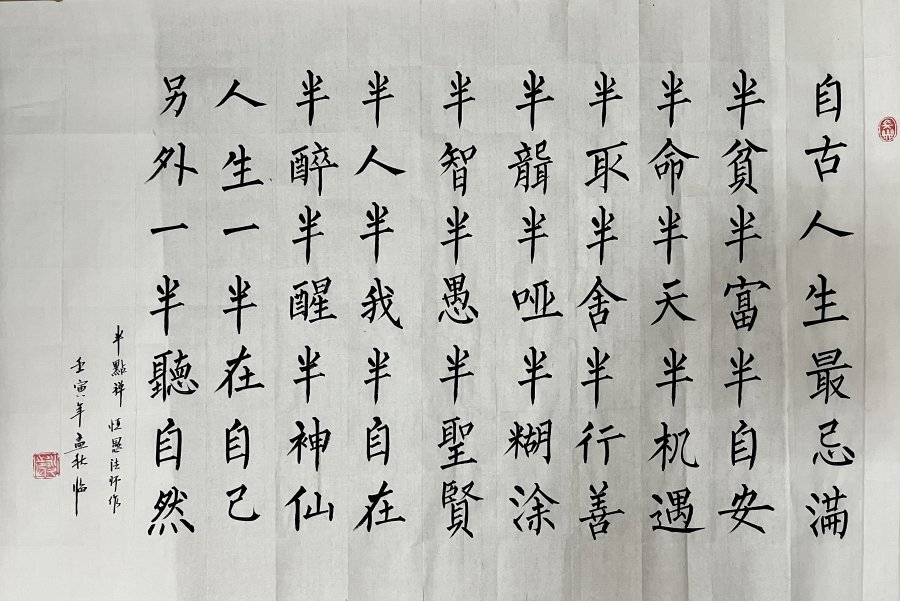 自古人生最忌滿
半貧半富半自安
半命半天半机遇
半取半舍半行善
半聾半哑半糊涂
半智半愚半聖賢
半人半我半自在
半醉半醒半神仙
人生一半在自己
另外一半聽自然
半點禅 恒愚法師作
壬寅年孟秋臨